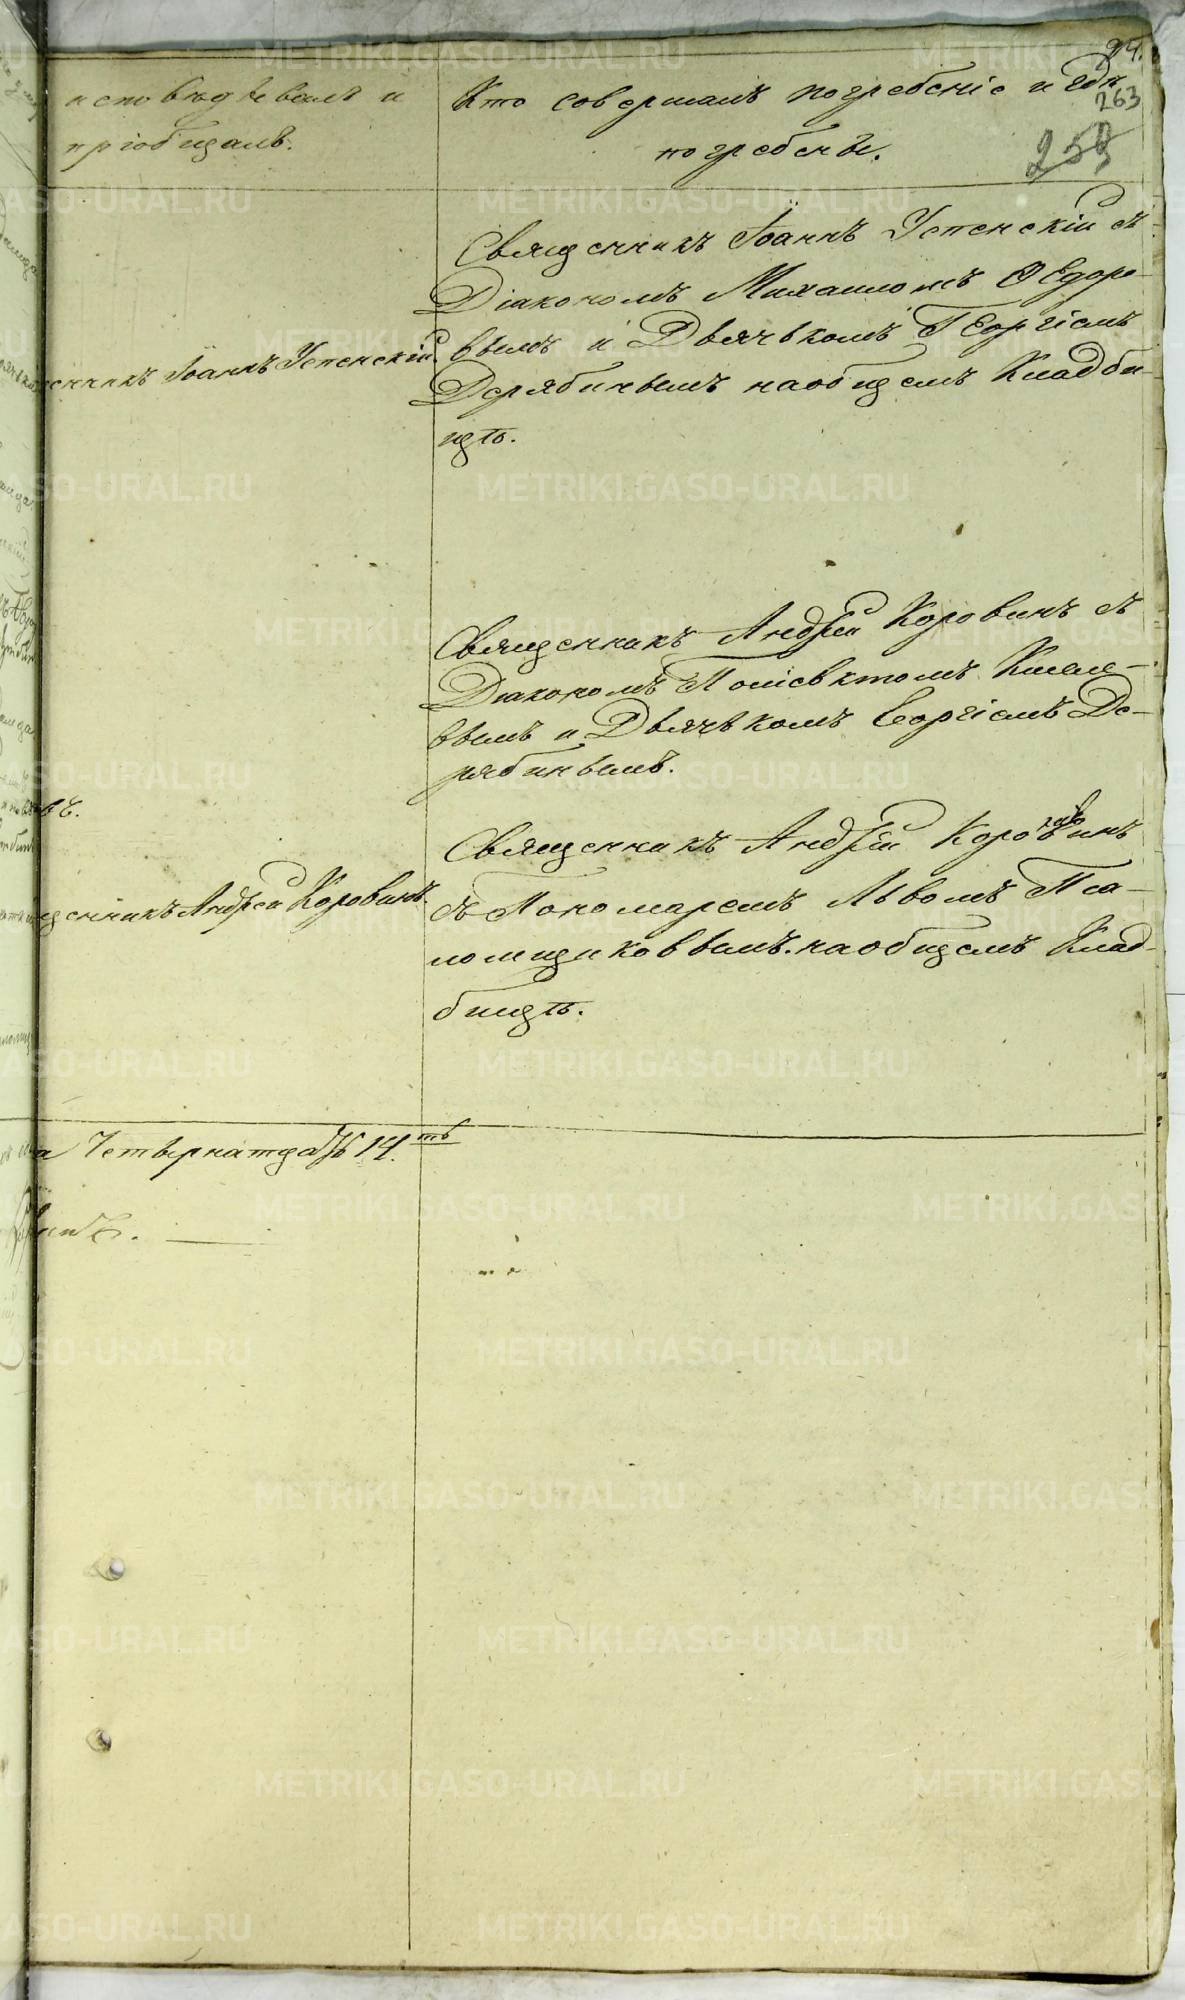 94.
263
259
исповѣдывалъ и
пріобщалъ.
Кто совершалъ погребеніе и гдѣ
погребены.
Священникъ Іоаннъ Успенскій съ
Діакономъ Михаиломъ Ѳедоро-
вымъ и Дьячькомъ Георгіемъ
Дерябинымъ на общемъ Кладби-
щѣ.
Іоаннъ Успенскій
Священникъ Андрей Коровинъ съ
Діакономъ Поліевктомъ Киселе-
вымъ и Дьячькомъ Георгіемъ Де-
рябинымъ.
Священникъ Андрей Коровинъ
съ Пономаремъ Львомъ Пса-
ломщиковвымъ. на общемъ Клад-
бищѣ.
Андрей Коровинъ
Четырнатцать 14.ть
METRIKI.GASO-URAL.RU